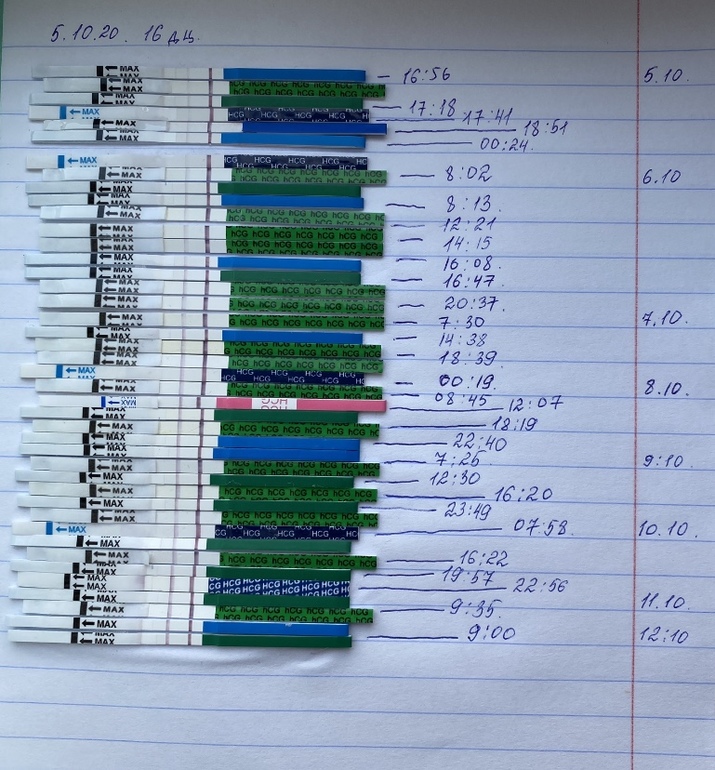 5.10.20. 16 дц.
16:56 5.10.
17:18
17:41
18:51
00:24.
8:02 6.10
8:13.
12:21
14:15
16:08.
16:47.
20:37.
7:30 7.10.
14:38
18:39.
00:19. 8.10.
08:45
12:07
18:19
22:40
7:25 9:10.
12:30
16:20
23:49
07:58. 10.10.
16:22
19:57
22:56
9:35. 11.10.
9:00 12:10
MAX
hCG hCG hCG hCG hCG
HCG HCG HCG